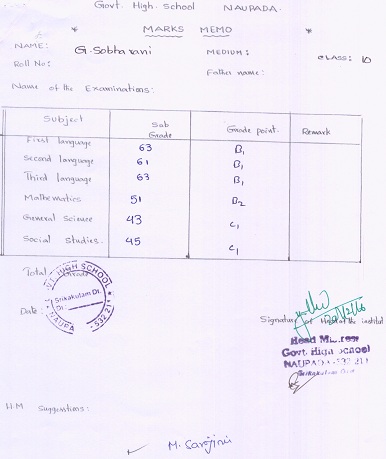 Govt. High. School NAUPADA.
* MARKS MEMO *
NAME: G. Sobha rani MEDIUM: CLASS: 10
Roll No: Father name:
Name of the Examinations:
Subject Sub Grade Grade point. Remark
First language 63 B1
Second language 61 B1
Third language 63 B1
Mathematics 51 B2
General Science 43 C1
Social studies. 45 C1
Total
HIGH SCHOOL
Srikakulam Dt.
Dt.
NAUPA
532 211
Date:
Signature of Head of the institut
Head
Govt. High School
NAUPADA-532 211
H.M Suggestions:
M. Sarojini